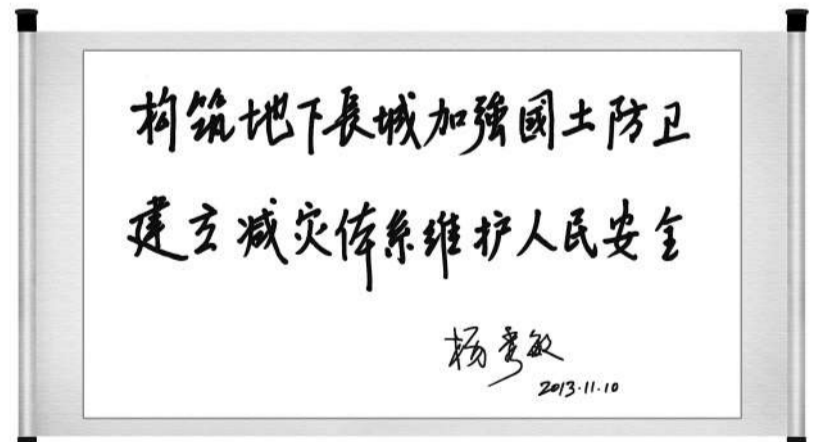 构筑地下長城加強國土防卫
建立减灾体系维护人民安全
杨秀敏
2013.11.10